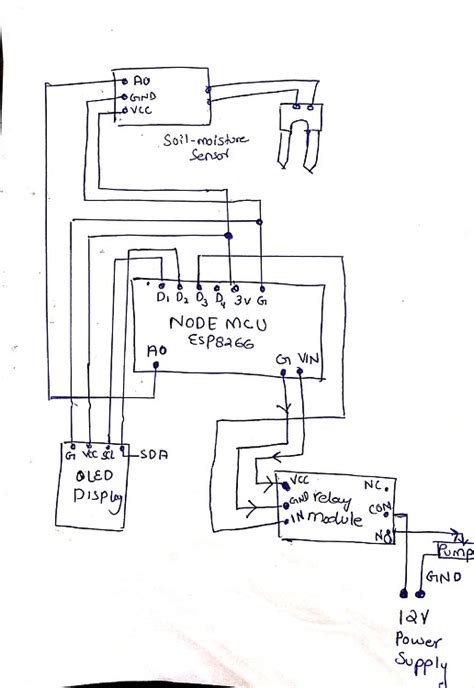 A0
GND
VCC
Soil-moisture
Sensor
D1 D2 D3 D4 3V G
NODE MCU
ESP8266
A0
G VIN
G VCC SCL SDA
OLED
Display
VCC
GND relay
IN module
NC
CON
NO
Pump
GND
12V
Power
Supply